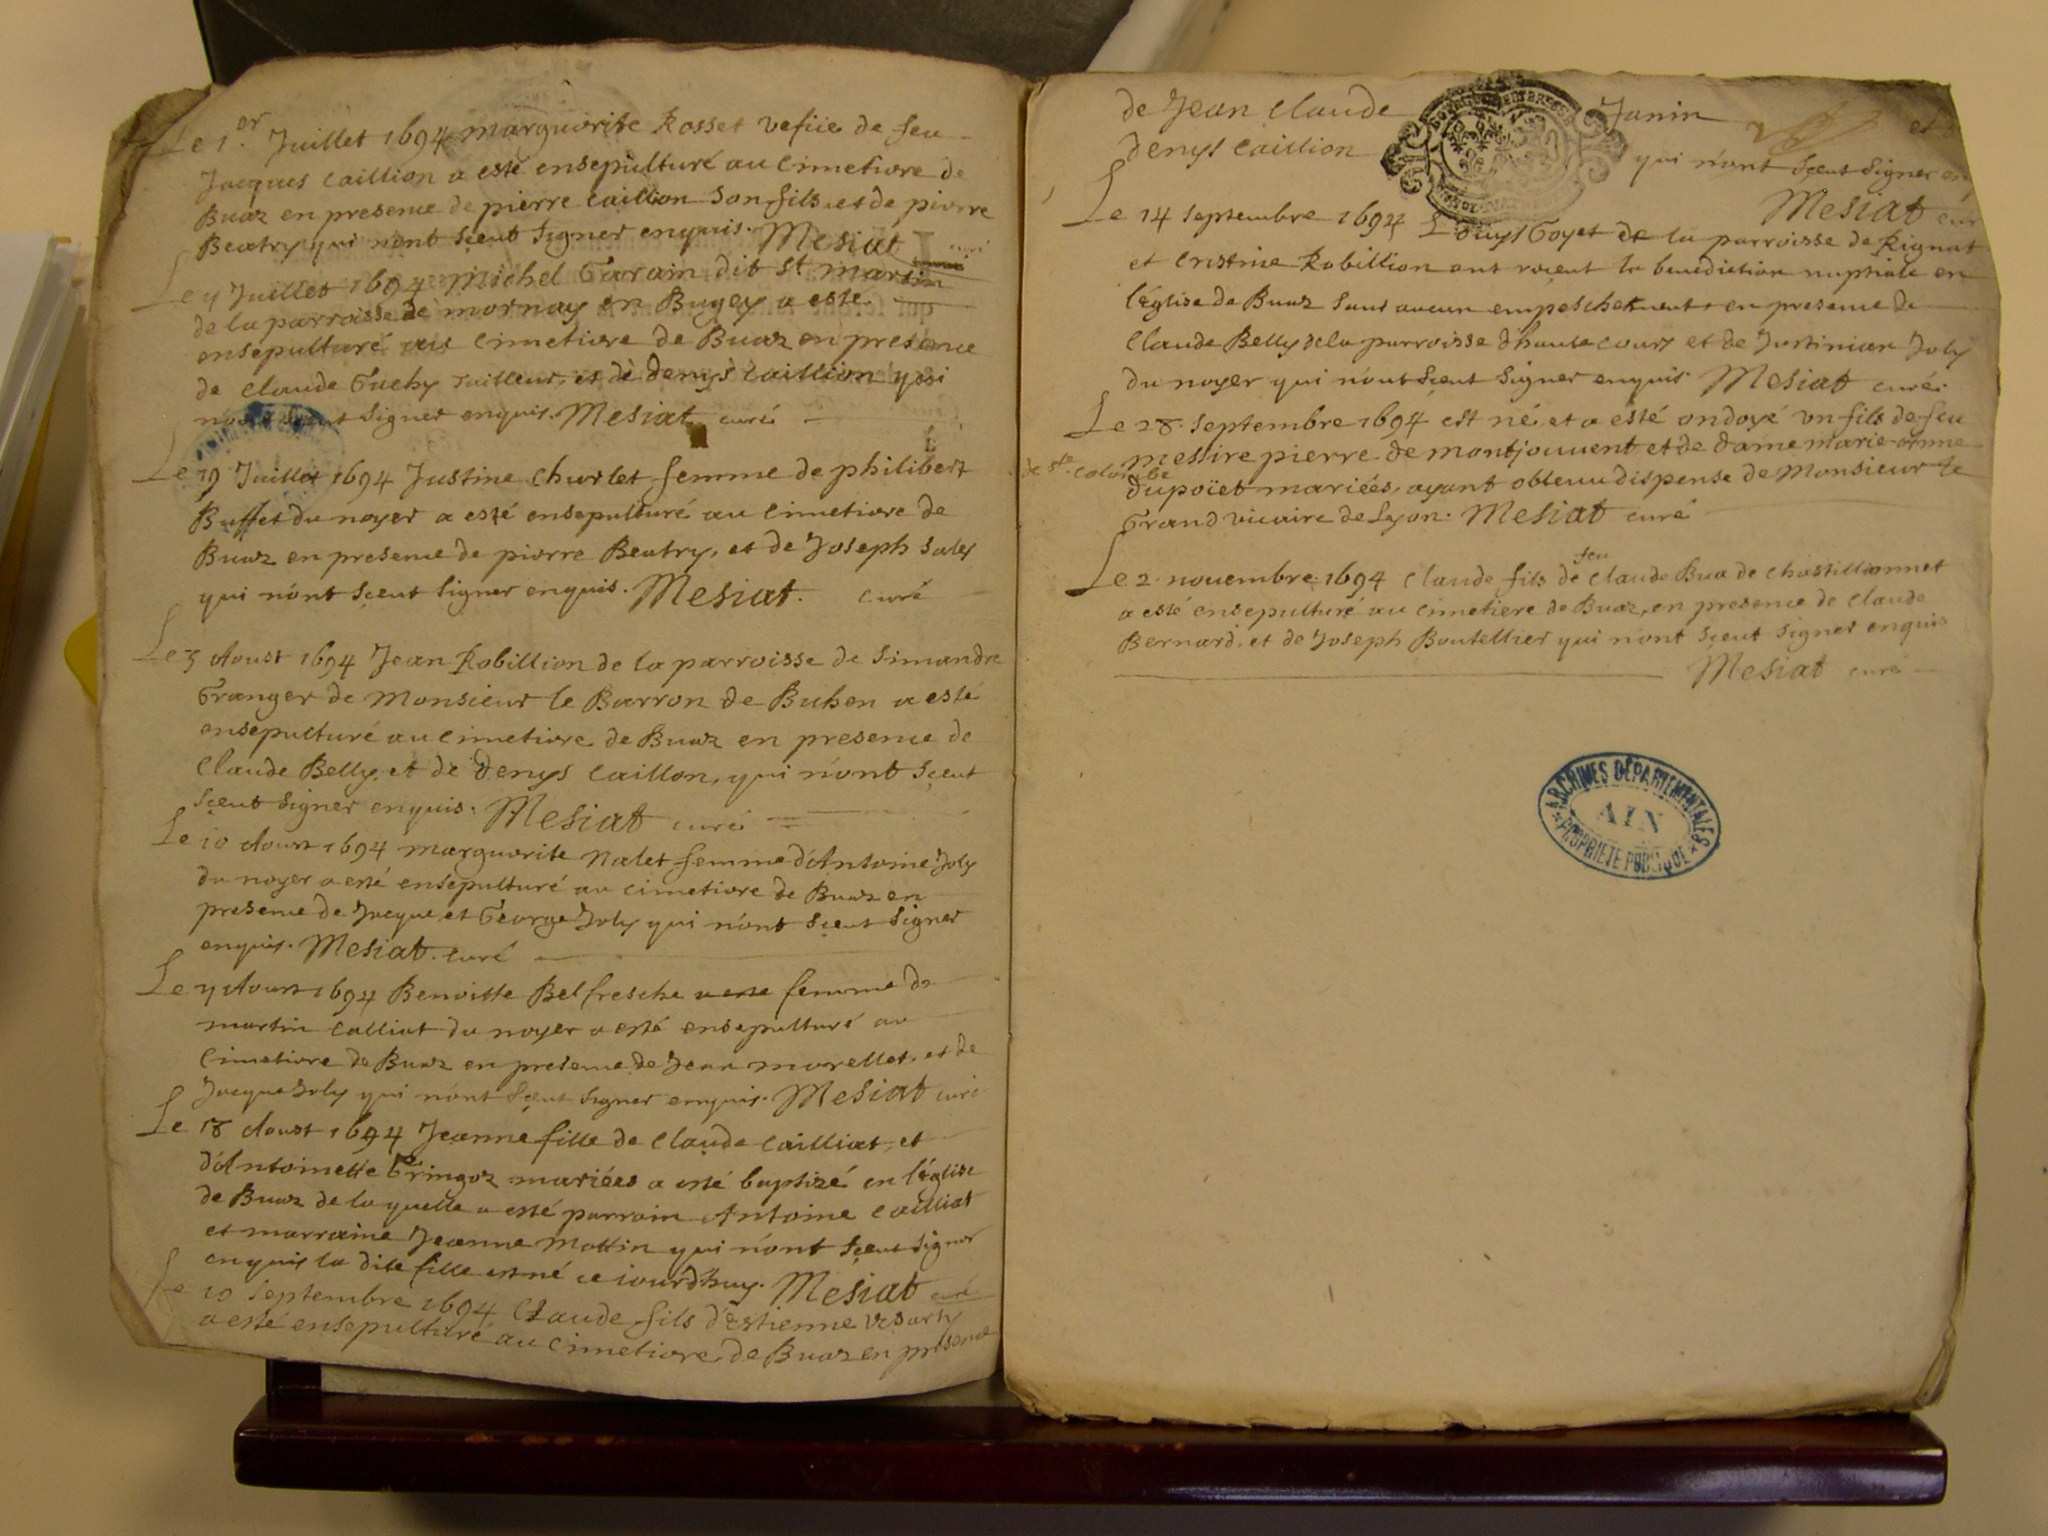 Le 1.er Juillet 1694 marguerite Rosset vefue de feu
Jacques Caillion a esté ensepulturé au Cimetiere de
Buaz en presence de pierre Caillion son fils et de pierre
Beatry qui n'ont sçeut signer enquis. Mesiat curé
Le 9 Juillet 1694 Michel Garain dit St martin
de la parroisse de mornay en Bugey a esté
ensepulturé au Cimetiere de Buaz en presence
de Claude Guchy tailleur, et de denys Caillion qui
n'ont sçeut signer enquis. Mesiat curé
Le 19 Juillet 1694 Justine Churlet femme de philibert
Buffet du noyer a esté ensepulturé au Cimetiere de
Buaz en presence de pierre Beatry, et de Joseph Saley
qui n'ont sçeut signer enquis. Mesiat. curé
Le 5 Aoust 1694 Jean Robillion de la parroisse de Simandre
Granger de Monsieur le Barron de Buhen a esté
ensepulturé au Cimetiere de Buaz en presence de
Claude Belly, et de denys Caillon, qui n'ont sçeut
sçeut signer enquis. Mesiat curé
Le 10 Aoust 1694 marguerite Nalet femme d'Antoine Joly
du noyer a esté ensepulturé au cimetiere de Buaz en
presence de Jacque, et George Joly qui n'ont sçeut signer
enquis. Mesiat. curé
Le Aoust 1694 Benoitte Belfresche femme de
martin Calliat du noyer a esté ensepulturé au
Cimetiere de Buaz en presence de Jean morellet, et de
Jacque Joly qui n'ont sçeut signer enquis. Mesiat curé
Le 18 Aoust 1694 Jeanne fille de Claude Cailliat, et
d'Antoinette Gringoz mariées a esté baptizé en l'église
de Buaz de laquelle a esté parrain Antoine Cailliat
et marraine Jeanne Mottin qui n'ont sçeut signer
enquis la dite fille est né ce iourd'huy. Mesiat curé
Le 10 Septembre 1694 Claude fils d'Estienne
a esté ensepulturé au Cimetiere de Buaz en presence
de Jean Claude Janin et
denys Caillion qui n'ont sçeut signer en
Mesiat cur
Le 14 Septembre 1694 Louys Goyet de la parroisse de Rignat
et Cristine Robillion ont receut la benediction nuptiale en
l'église de Buaz sans aucun empeschement, en presence de
Claude Belly de la parroisse d'haute cour, et de Justinian Joly
du noyer qui n'ont sçeut signer enquis. Mesiat curé.
Le 28. Septembre 1694 est né et a esté ondoyé vn fils de feu
messire pierre de montjouuent et de dame marie anne
de ste. Colombe
dupoïet mariées, ayant obtenu dispense de Monsieur le
Grand vicaire de Lyon. Mesiat curé
Le 2. nouembre 1694 Claude fils de feu Claude Bua de Chastillionnet
a esté ensepulturé au Cimetiere de Buaz, en presence de Claude
Bernard, et de Joseph Boutellier qui n'ont sçeut signer enquis
Mesiat curé
ARCHIVES DÉPARTEMENTALES
AIN
PROPRIÉTÉ PUBLIQUE